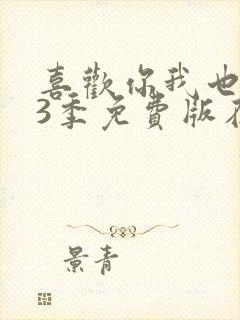 喜歡你我也
3季免費版在
景青